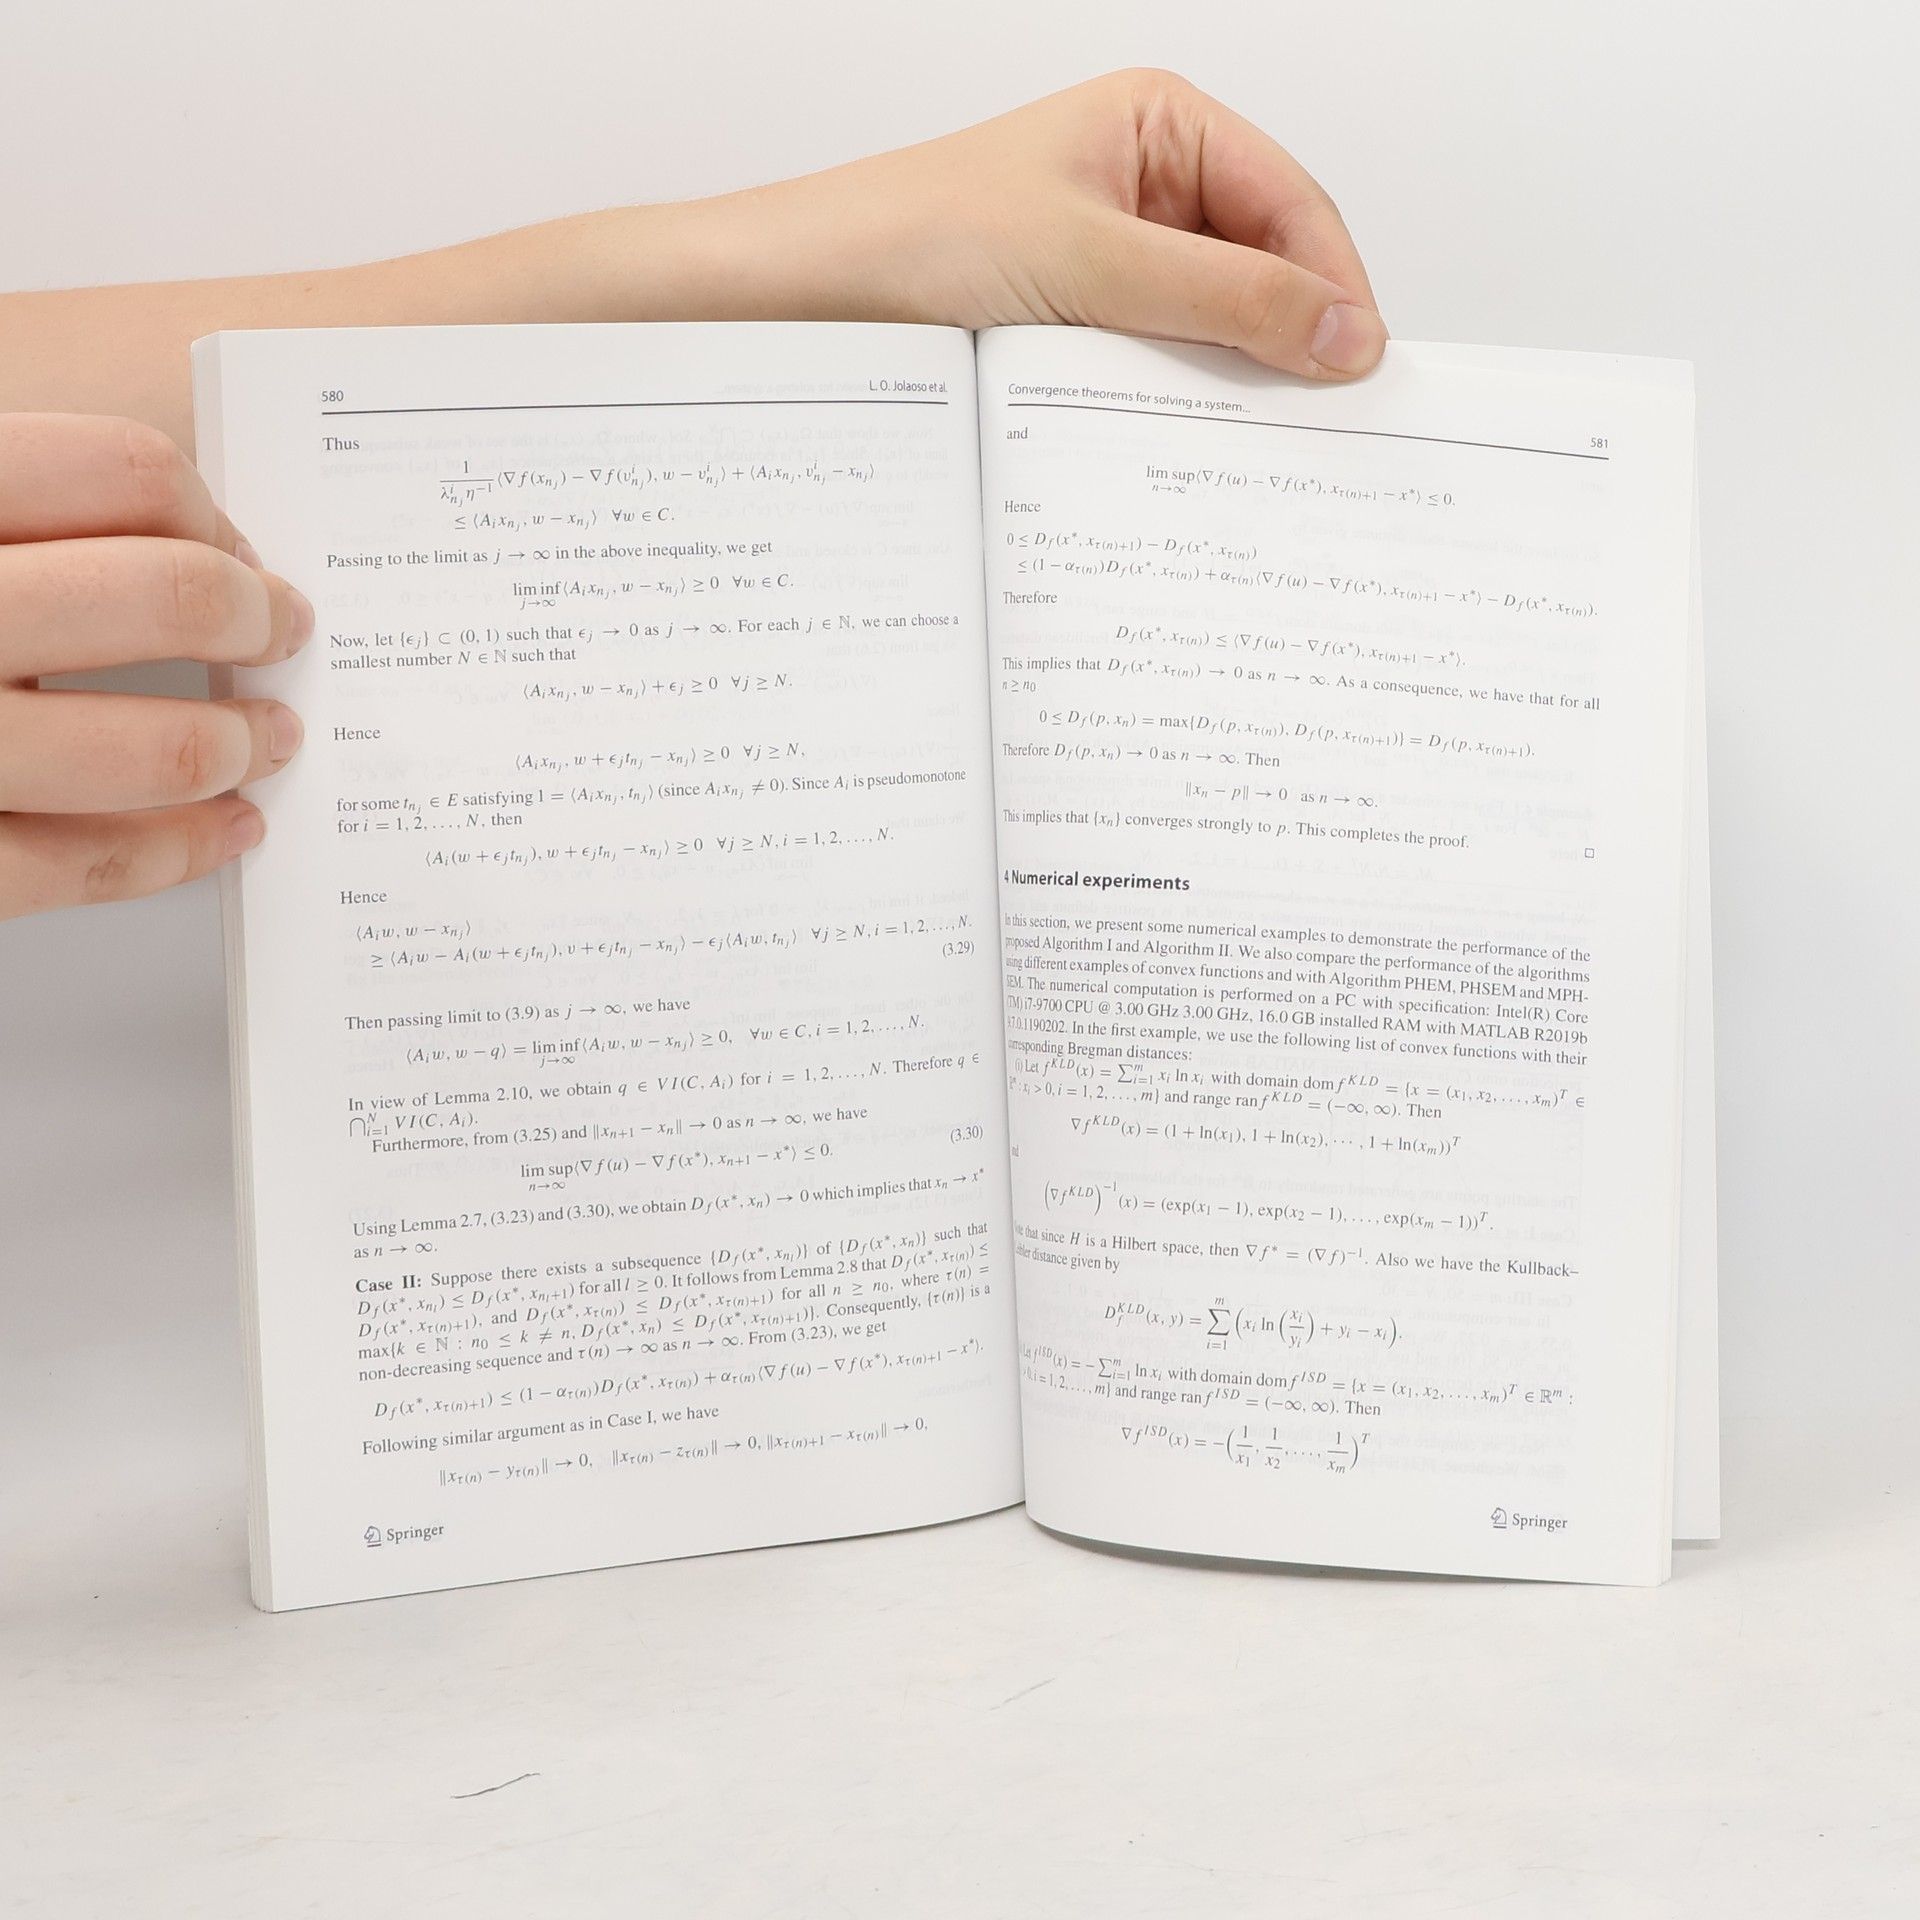 580
L. O. Jolaoso et al.
Thus
1/(λ^i_{n_j} η^{-1}) ⟨∇f(x_{n_j}) − ∇f(v^i_{n_j}), w − v^i_{n_j}⟩ + ⟨A_i x_{n_j}, v^i_{n_j} − x_{n_j}⟩
≤ ⟨A_i x_{n_j}, w − x_{n_j}⟩ ∀w ∈ C.
Passing to the limit as j → ∞ in the above inequality, we get
lim inf_{j→∞} ⟨A_i x_{n_j}, w − x_{n_j}⟩ ≥ 0 ∀w ∈ C.
Now, let {ϵ_j} ⊂ (0, 1) such that ϵ_j → 0 as j → ∞. For each j ∈ ℕ, we can choose a
smallest number N ∈ ℕ such that
⟨A_i x_{n_j}, w − x_{n_j}⟩ + ϵ_j ≥ 0 ∀j ≥ N.
Hence
⟨A_i x_{n_j}, w + ϵ_j t_{n_j} − x_{n_j}⟩ ≥ 0 ∀j ≥ N,
for some t_{n_j} ∈ E satisfying 1 = ⟨A_i x_{n_j}, t_{n_j}⟩ (since A_i x_{n_j} ≠ 0). Since A_i is pseudomonotone
for i = 1, 2, . . . , N, then
⟨A_i(w + ϵ_j t_{n_j}), w + ϵ_j t_{n_j} − x_{n_j}⟩ ≥ 0 ∀j ≥ N, i = 1, 2, . . . , N.
Hence
⟨A_i w, w − x_{n_j}⟩
≥ ⟨A_i w − A_i(w + ϵ_j t_{n_j}), v + ϵ_j t_{n_j} − x_{n_j}⟩ − ϵ_j⟨A_i w, t_{n_j}⟩ ∀j ≥ N, i = 1, 2, . . . , N.
(3.29)
Then passing limit to (3.9) as j → ∞, we have
⟨A_i w, w − q⟩ = lim inf_{j→∞} ⟨A_i w, w − x_{n_j}⟩ ≥ 0, ∀w ∈ C, i = 1, 2, . . . , N.
In view of Lemma 2.10, we obtain q ∈ VI(C, A_i) for i = 1, 2, . . . , N. Therefore q ∈
⋂^N_{i=1} VI(C, A_i).
Furthermore, from (3.25) and ‖x_{n+1} − x_n‖ → 0 as n → ∞, we have
lim sup_{n→∞} ⟨∇f(u) − ∇f(x*), x_{n+1} − x*⟩ ≤ 0. (3.30)
Using Lemma 2.7, (3.23) and (3.30), we obtain D_f(x*, x_n) → 0 which implies that x_n → x*
as n → ∞.
Case II: Suppose there exists a subsequence {D_f(x*, x_{n_l})} of {D_f(x*, x_n)} such that
D_f(x*, x_{n_l}) ≤ D_f(x*, x_{n_l+1}) for all l ≥ 0. It follows from Lemma 2.8 that D_f(x*, x_{τ(n)}) ≤
D_f(x*, x_{τ(n)+1}), and D_f(x*, x_{τ(n)}) ≤ D_f(x*, x_{τ(n)+1}) for all n ≥ n_0, where τ(n) =
max{k ∈ ℕ : n_0 ≤ k ≠ n, D_f(x*, x_n) ≤ D_f(x*, x_{τ(n)+1})}. Consequently, {τ(n)} is a
non-decreasing sequence and τ(n) → ∞ as n → ∞. From (3.23), we get
D_f(x*, x_{τ(n)+1}) ≤ (1 − α_{τ(n)})D_f(x*, x_{τ(n)}) + α_{τ(n)}⟨∇f(u) − ∇f(x*), x_{τ(n)+1} − x*⟩.
Following similar argument as in Case I, we have
‖x_{τ(n)} − y_{τ(n)}‖ → 0, ‖x_{τ(n)} − z_{τ(n)}‖ → 0, ‖x_{τ(n)+1} − x_{τ(n)}‖ → 0,
Springer
Convergence theorems for solving a system...
581
and
lim sup_{n→∞} ⟨∇f(u) − ∇f(x*), x_{τ(n)+1} − x*⟩ ≤ 0.
Hence
0 ≤ D_f(x*, x_{τ(n)+1}) − D_f(x*, x_{τ(n)})
≤ (1 − α_{τ(n)})D_f(x*, x_{τ(n)}) + α_{τ(n)}⟨∇f(u) − ∇f(x*), x_{τ(n)+1} − x*⟩ − D_f(x*, x_{τ(n)}).
Therefore
D_f(x*, x_{τ(n)}) ≤ ⟨∇f(u) − ∇f(x*), x_{τ(n)+1} − x*⟩.
This implies that D_f(x*, x_{τ(n)}) → 0 as n → ∞. As a consequence, we have that for all
n ≥ n_0
0 ≤ D_f(p, x_n) = max{D_f(p, x_{τ(n)}), D_f(p, x_{τ(n)+1})} = D_f(p, x_{τ(n)+1}).
Therefore D_f(p, x_n) → 0 as n → ∞. Then
‖x_n − p‖ → 0 as n → ∞.
This implies that {x_n} converges strongly to p. This completes the proof. □
4 Numerical experiments
In this section, we present some numerical examples to demonstrate the performance of the
proposed Algorithm I and Algorithm II. We also compare the performance of the algorithms
using different examples of convex functions and with Algorithm PHEM, PHSEM and MPH-
SEM. The numerical computation is performed on a PC with specification: Intel(R) Core
(TM) i7-9700 CPU @ 3.00 GHz 3.00 GHz, 16.0 GB installed RAM with MATLAB R2019b
9.7.0.1190202. In the first example, we use the following list of convex functions with their
corresponding Bregman distances:
(i) Let f^{KLD}(x) = ∑^m_{i=1} x_i ln x_i with domain dom f^{KLD} = {x = (x_1, x_2, . . . , x_m)^T ∈
ℝ^m : x_i > 0, i = 1, 2, . . . , m} and range ran f^{KLD} = (−∞, ∞). Then
∇f^{KLD}(x) = (1 + ln(x_1), 1 + ln(x_2), · · · , 1 + ln(x_m))^T
and
(∇f^{KLD})^{−1}(x) = (exp(x_1 − 1), exp(x_2 − 1), . . . , exp(x_m − 1))^T.
that since H is a Hilbert space, then ∇f* = (∇f)^{−1}. Also we have the Kullback–
distance given by
D_f^{KLD}(x, y) = ∑^m_{i=1} (x_i ln(x_i/y_i) + y_i − x_i).
Let f^{ISD}(x) = −∑^m_{i=1} ln x_i with domain dom f^{ISD} = {x = (x_1, x_2, . . . , x_m)^T ∈ ℝ^m :
> 0, i = 1, 2, . . . , m} and range ran f^{ISD} = (−∞, ∞). Then
∇f^{ISD}(x) = −(1/x_1, 1/x_2, . . . , 1/x_m)^T
Springer